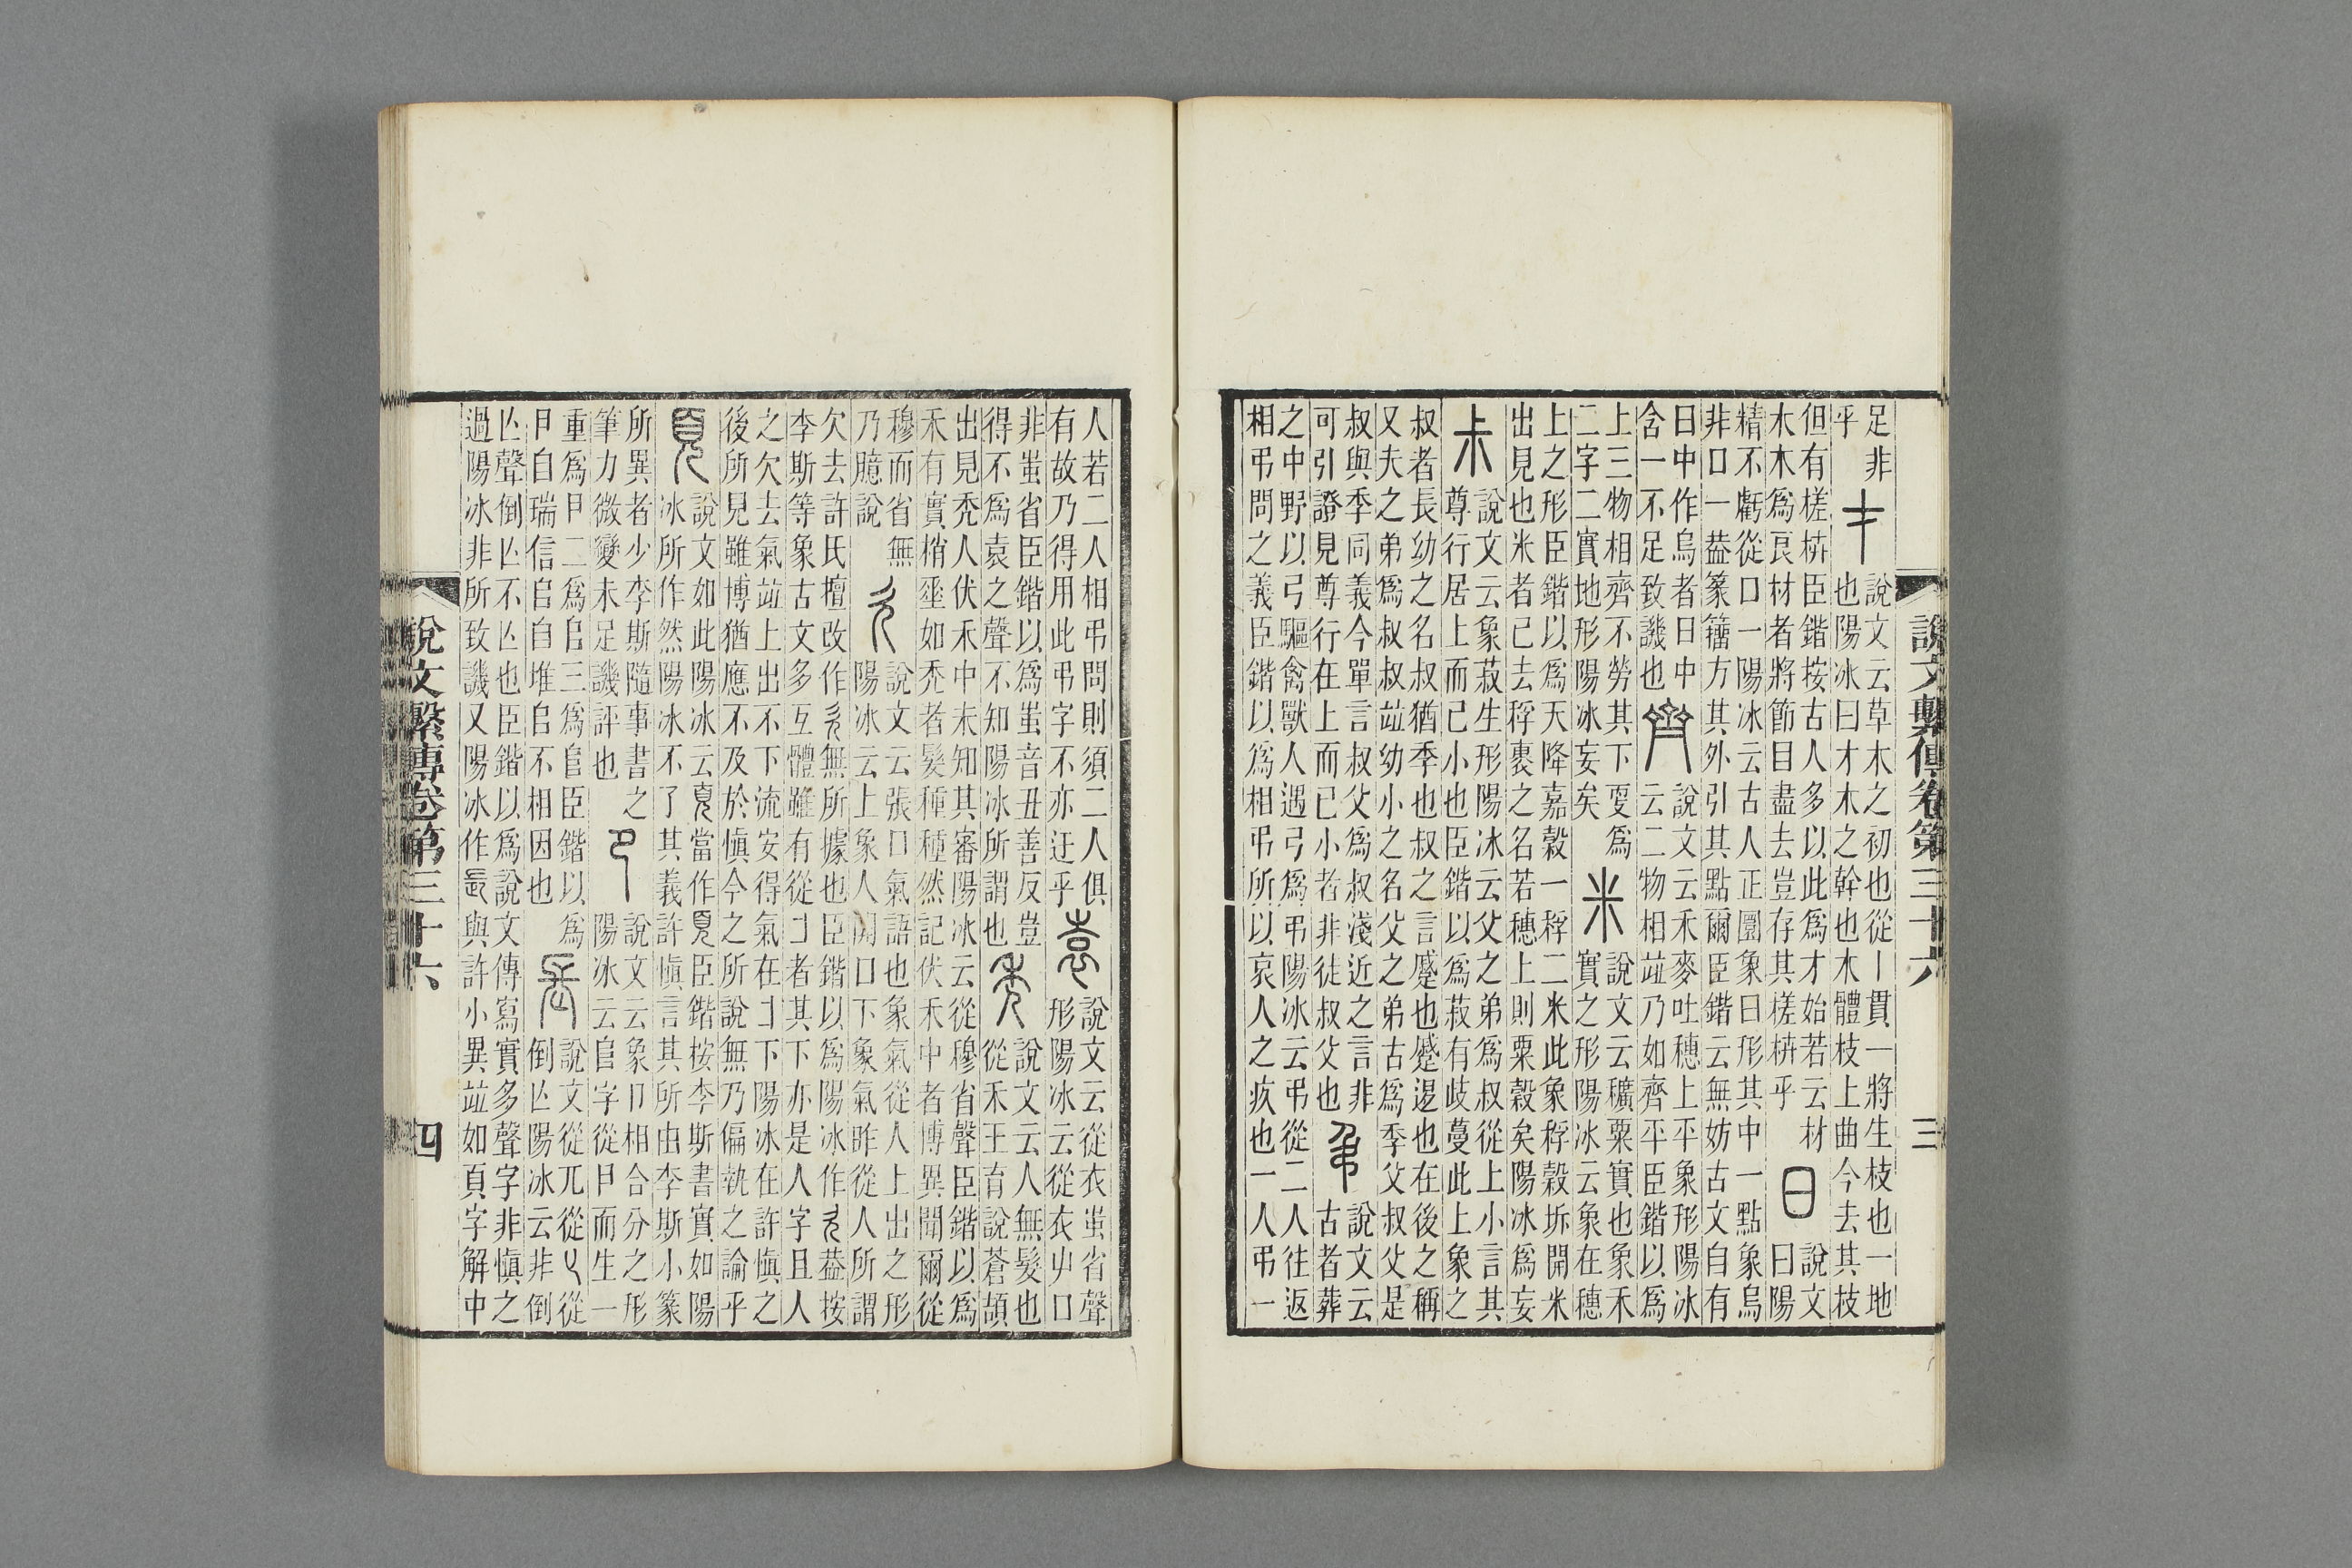 說文繫傳卷第三十六 三
足非 才 說文云草木之初也從丨貫一將生枝也一地
乎 也陽冰曰才木之幹也木體枝上曲今去其枝
但有槎枿臣鍇按古人多以此爲才始若云材 日 說文
木木爲良材者將節目盡去豈存其槎枿乎 曰陽
精不虧從口一陽冰云古人正圜象日形其中一點象烏
非口一葢篆籒方其外引其點爾臣鍇云無妨古文自有
日中作烏者日中 齊 說文云禾麥吐穗上平象形陽冰
含一不足致譏也 云二物相竝乃如齊平臣鍇以爲
上三物相齊不勞其下叓爲 米 說文云穬粟實也象禾
二字二實地形陽冰妄矣 實之形陽冰云象在穗
上之形臣鍇以爲天降嘉穀一稃二米此象稃穀坼開米
出見也米者已去稃裹之名若穗上則粟穀矣陽冰爲妄
尗 說文云象菽生形陽冰云父之弟爲叔從上小言其
尊行居上而已小也臣鍇以爲菽有歧蔓此上象之
叔者長幼之名叔猶季也叔之言蹙也蹙迡也在後之稱
又夫之弟爲叔叔竝幼小之名父之弟古爲季父叔父是
叔與季同義今單言叔父爲叔淺近之言非 弔 說文云
可引證見尊行在上而已小者非徒叔父也 古者葬
之中野以弓驅禽獸人遇弓爲弔陽冰云弔從二人往返
相弔問之義臣鍇以爲相弔所以哀人之疚也一人弔一
人若二人相弔問則須二人俱 袁 說文云從衣叀省聲
有故乃得用此弔字不亦迂乎 形陽冰云從衣屮口
非叀省臣鍇以爲叀音丑善反豈 禿 說文云人無髮也
得不爲袁之聲不知陽冰所謂也 從禾王育說蒼頡
出見禿人伏禾中未知其審陽冰云從穆省聲臣鍇以爲
禾有實梢垂如禿者髮種種然記伏禾中者博異聞爾從
穆而省無 欠 說文云張口氣語也象氣從人上出之形
乃臆說 陽冰云上象人開口下象氣昨從人所謂
欠去許氏擅改作欠無所據也臣鍇以爲陽冰作葢按
李斯等象古文多互體雖有從者其下亦是人字且人
之欠去氣竝上出不下流安得氣在下陽冰在許慎之
後所見雖博猶應不及於慎今之所說無乃偏執之論乎
頁 說文如此陽冰云當作臣鍇按李斯書實如陽
冰所作然陽冰不了其義許慎言其所由李斯小篆
所異者少李斯隨事書之 卪 說文云象卪相合分之形
筆力微變未足譏評也 陽冰云𠂤字從而生一
重爲二爲𠂤三爲臣鍇以爲 長 說文從兀從匕從
自瑞信𠂤自堆𠂤不相因也 倒亾陽冰云非倒
亾聲倒亾不亾也臣鍇以爲說文傳寫實多聲字非慎之
過陽冰非所致譏又陽冰作镸與許小異竝如頁字解中
說文繫傳卷第三十六 四